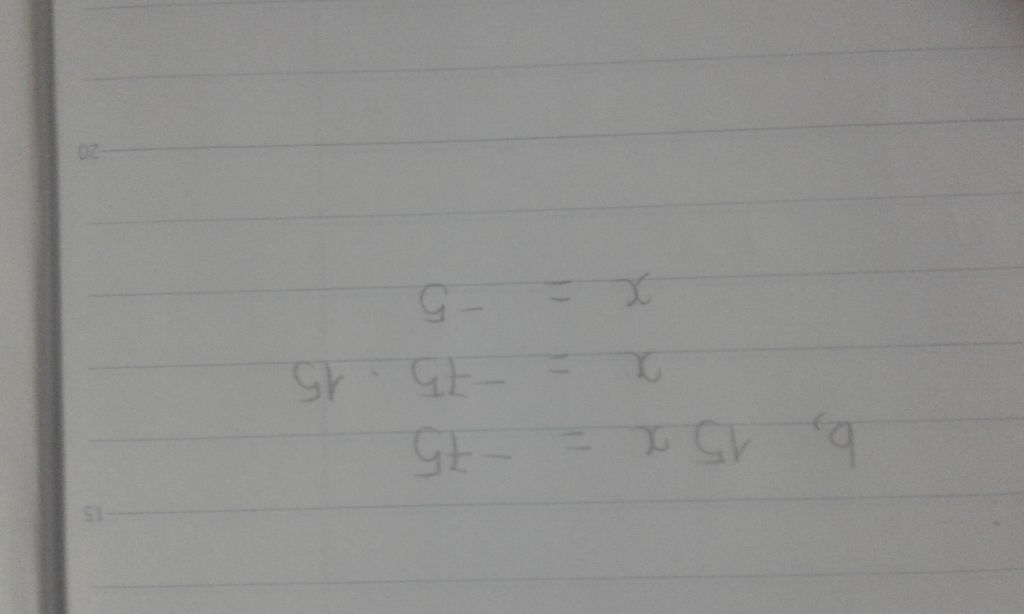 15
b, 15 x = -75
x = -75 . 15
x = -5
20